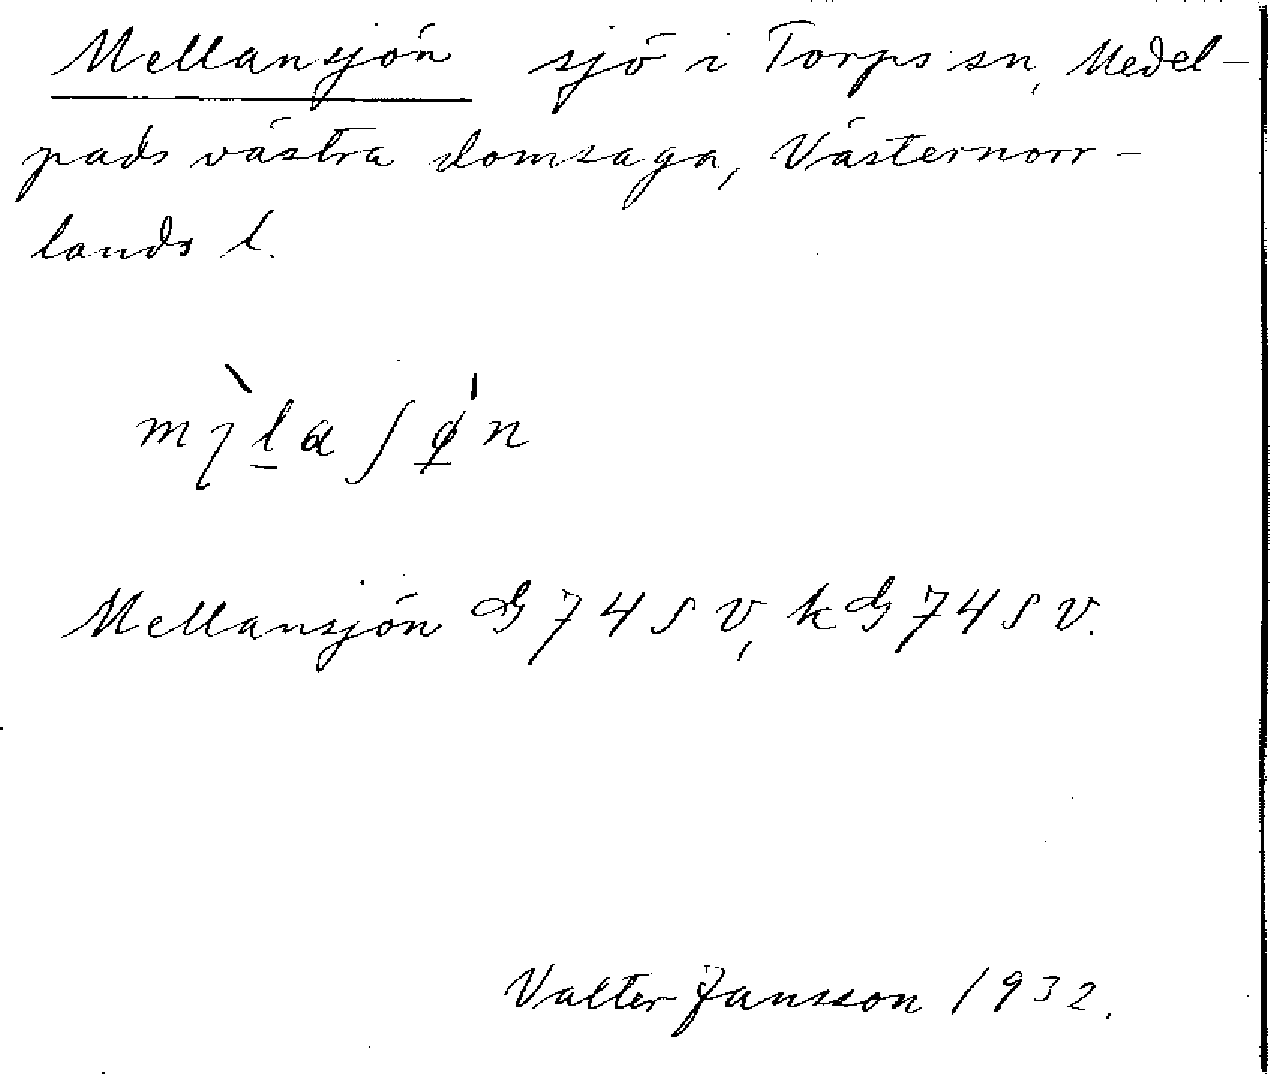 Mellansjön sjö i Torps sn, Medel-
pads västra domsaga, Västernorr-
lands l.
Mellansjön GS 74 S V, k GS 74 S V.
Valter Jansson 1932.